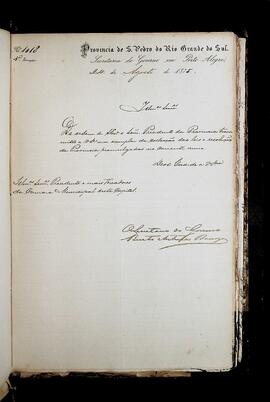 Nº 1018
Provincia de S. Pedro do Rio Grande do Sul.
4ª Secção
Secretaria do Governo em Porto Alegre,
de Agosto de 1875.
Illmos Snrs.
De ordem de S. Exª o Snr. Presidente da Provincia
a V. Sas um exemplar da collecção das leis e
da Provincia promulgadas no corrente anno.
Deos Guarde a V. Sas
Illmos Snrs. Presidente e mais Vereadores
da Camara Municipal desta Capital.
O Secretario do Governo